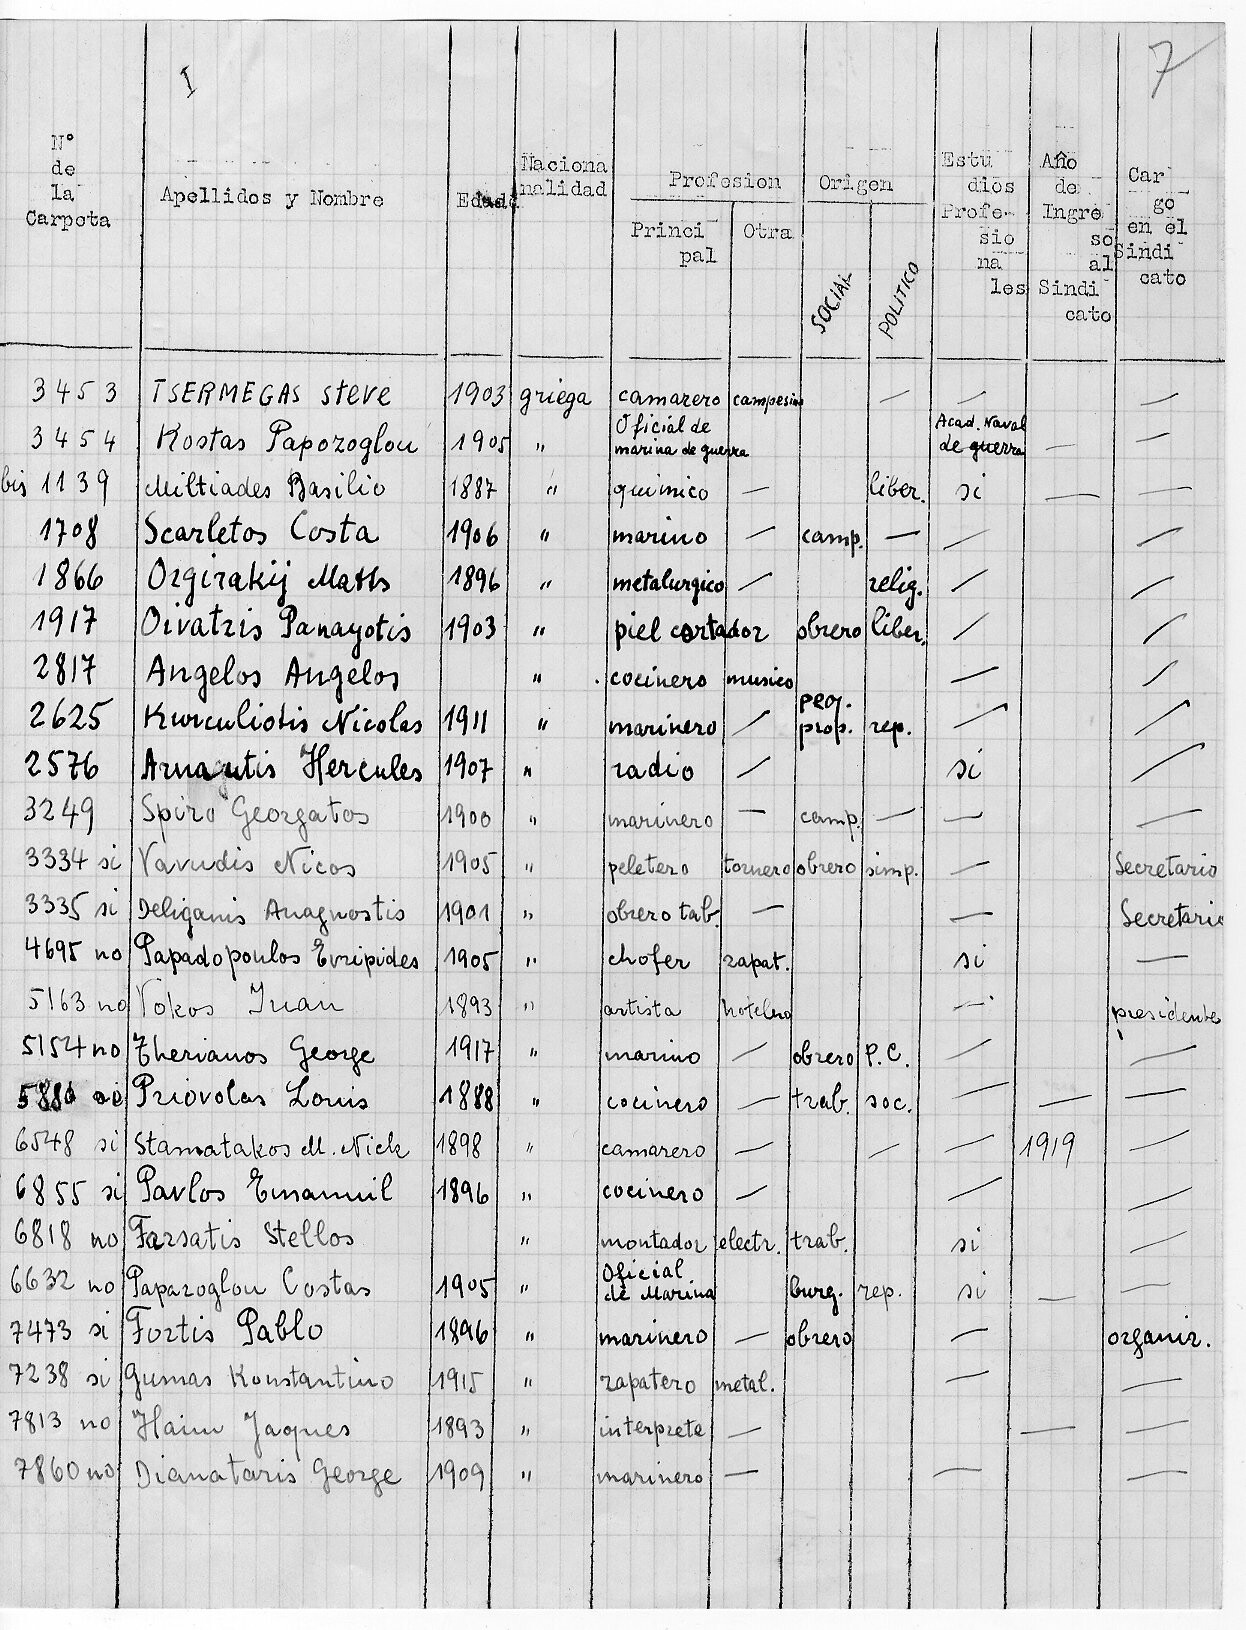 I
7
Nº de la Carpota | Apellidos y Nombre | Edade | Naciona nalidad | Profesion | Origen | Estu dios Profe- sio na les | Año de Ingre so al Sindi cato | Car go en el Sindi cato
Princi pal | Otra | SOCIAL | POLITICO
3453 TSERMEGAS Steve 1903 griega camarero campesino — — —
3454 Kostas Papozoglou 1905 " Oficial de marina de guerra Acad. Naval de guerra — —
bis 1139 Miltiades Basilio 1887 " quimico — liber. si — —
1708 Scarletos Costa 1906 " marino — camp. — — —
1866 Ozgirakij 1896 " metalurgico — relig. — —
1917 Oivatzis Panayotis 1903 " piel cortador obrero liber. — —
2817 Angelos Angelos " cocinero musico — —
2625 Kurculiotis Nicolas 1911 " marinero — peq. prop. rep. — —
2576 Arnautis Hercules 1907 " radio — si —
3249 Spiro Georgatos 1900 " marinero — camp. — — —
3334 si Vavudis Nicos 1905 " peletero tornero obrero simp. — Secretario
3335 si Deliganis Anagnostis 1901 " obrero tab. — — Secretario
4695 no Papadopoulos Evripides 1905 " chofer zapat. si —
5163 no Vokos Juan 1893 " artista hotelero — presidente
5154 no Therianos George 1917 " marino — obrero P.C. — —
si Priovolas Louis 1888 " cocinero — trab. soc. — — —
6548 si Stamatakos M. Nick 1898 " camarero — — — 1919 —
6855 si Pavlos Emanuil 1896 " cocinero — — —
6818 no Farsatis Stellos " montador electr. trab. si —
6632 no Papazoglou Costas 1905 " Oficial de Marina burg. rep. si — —
7473 si Fortis Pablo 1896 " marinero — obrero — organiz.
7238 si Gumas Konstantino 1915 " zapatero metal. — —
7813 no Haim Jaques 1893 " interprete — — —
7860 no Dianataris George 1909 " marinero — — —